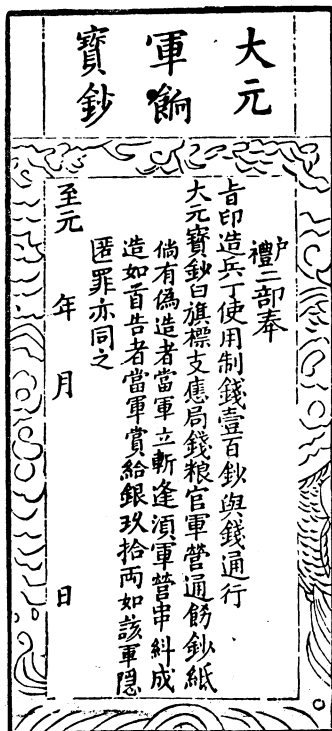 大元
軍餉
寶鈔
戶禮二部奉
旨印造兵丁使用制錢壹百鈔與錢通行
大元寶鈔白旗標支應局錢粮官軍營通餝鈔紙
倘有偽造者當軍立斬逢湏軍營串糾成
造如首告者當軍賞給銀玖拾両如該軍隱
匿罪亦同之
至元 年 月 日